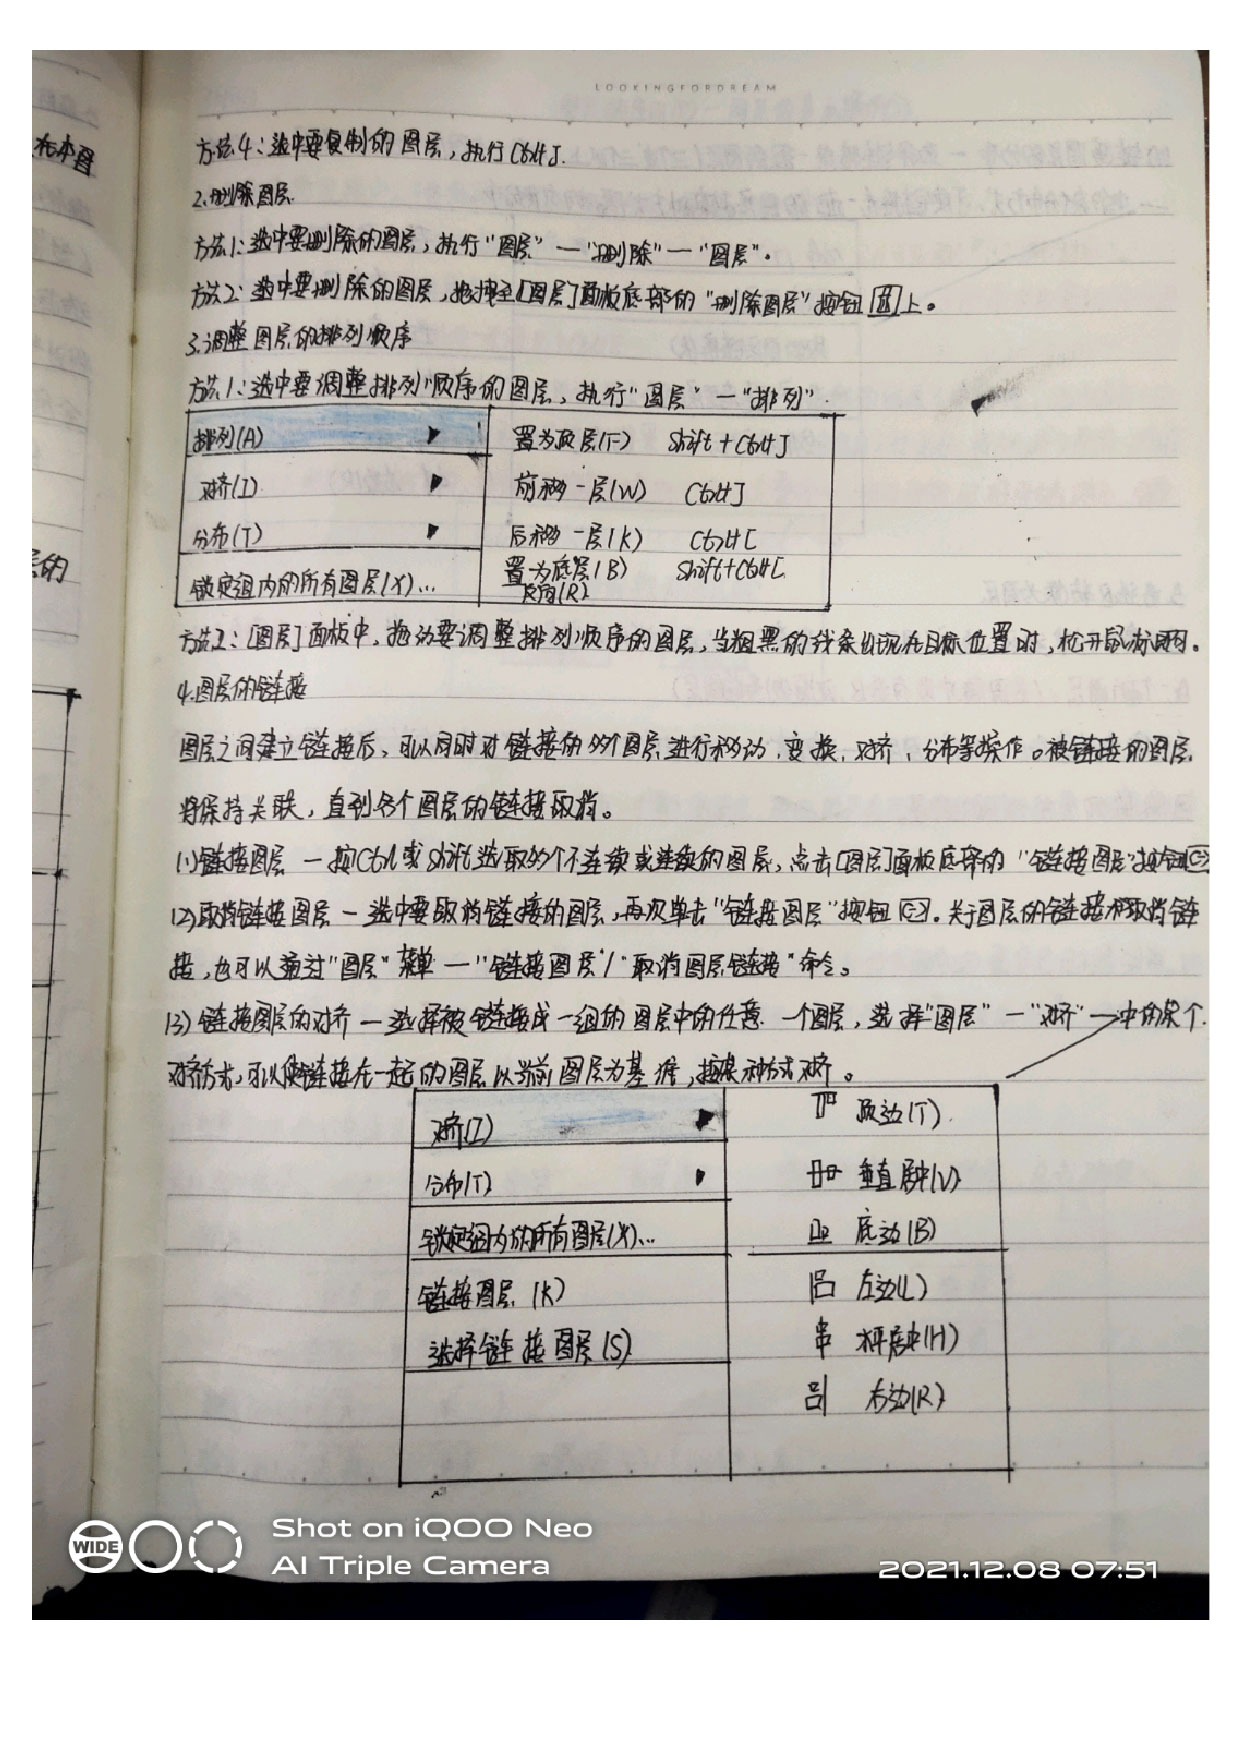 LOOKINGFORDREAM
方法4：选中要复制的图层，执行Ctrl+J.
2.删除图层.
方法1：选中要删除的图层，执行"图层"—"删除"—"图层"。
方法2：选中要删除的图层，拖拽至[图层]面板底部的"删除图层"按钮上。
3.调整图层的排列顺序
方法1：选中要调整排列顺序的图层，执行"图层"—"排列".
排列(A) 置为顶层(F) Shift+Ctrl+]
对齐(I) 前移一层(W) Ctrl+]
分布(T) 后移一层(K) Ctrl+[
锁定组内的所有图层(X)... 置为底层(B) Shift+Ctrl+[
反向(R)
方法2：[图层]面板中，拖动要调整排列顺序的图层，当粗黑的线条出现在目标位置时，松开鼠标即可。
4.图层的链接
图层之间建立链接后，可以同时对链接的多个图层进行移动，变换，对齐，分布等操作。被链接的图层
将保持关联，直到各个图层的链接取消。
(1)链接图层 —按Ctrl或Shift选取多个不连续或连续的图层，点击[图层]面板底部的"链接图层"按钮
(2)取消链接图层—选中要取消链接的图层，再次单击"链接图层"按钮.关于图层的链接和取消链
接，也可以通过"图层"菜单—"链接图层"/"取消图层链接"命令。
(3)链接图层的对齐—选择被链接成一组的图层中的任意一个图层，选择"图层"—"对齐"—中的某个
对齐方式，可以使链接在一起的图层以当前图层为基准，按某种方式对齐。
对齐(I) 顶边(T)
分布(T) 垂直居中(V)
锁定组内的所有图层(X)... 底边(B)
链接图层(K) 左边(L)
选择链接图层(S) 水平居中(H)
右边(R)
WIDE
Shot on iQOO Neo
AI Triple Camera
2021.12.08 07:51